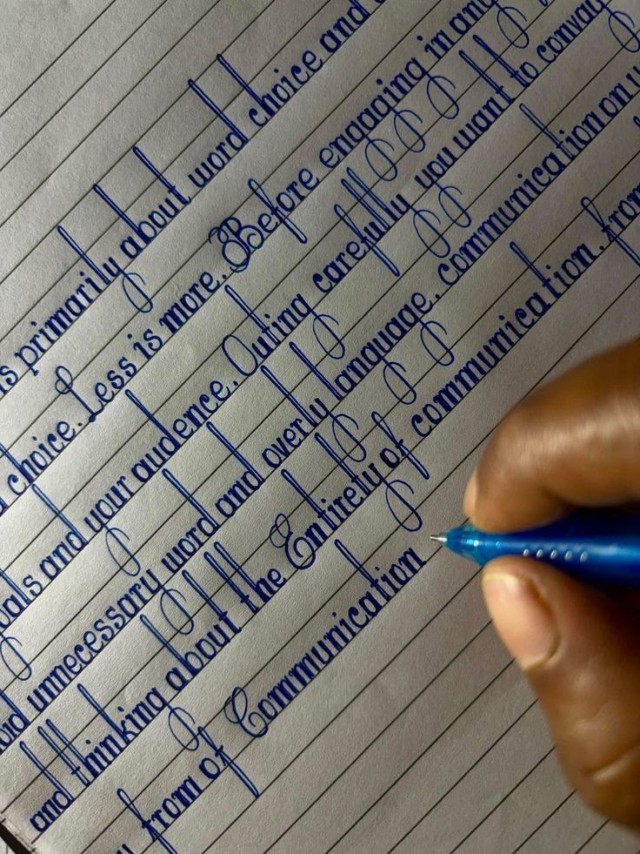 is primarily about word choice and
choice. Less is more. Before engaging in
and your audence. Outing carefully you want to convay
unnecessary word and overly language. communication on
and thinking about the Entirely of communication. from
from of Communication